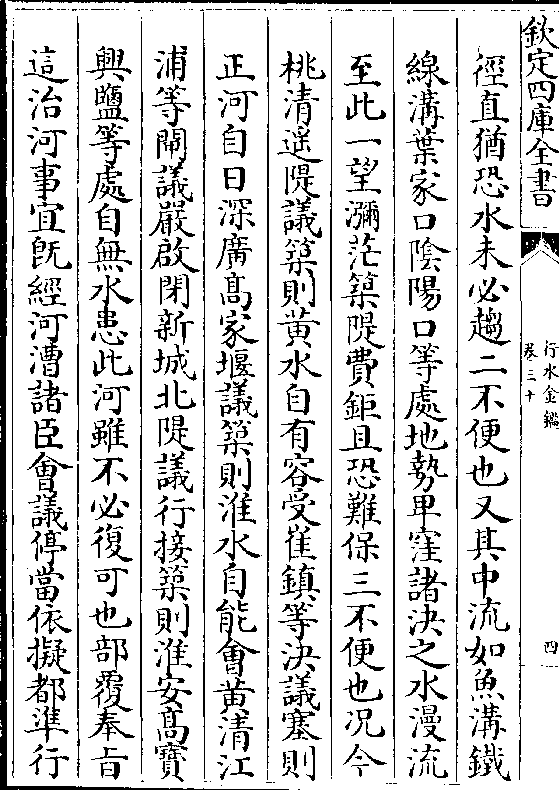 欽定四庫全書
行水金鑑
卷三十
四
徑直猶恐水未必趨二不便也又其中流如魚溝鐵
線溝葉家口陰陽口等處地勢卑窪諸決之水漫流
至此一望瀰茫築隄費鉅且恐難保三不便也况今
桃清遥隄議築則黄水自有容受崔鎮等決議塞則
正河自日深廣髙家堰議築則淮水自能會黄清江
浦等閘議嚴啟閉新城北隄議行接築則淮安髙寶
興鹽等處自無水患此河雖不必復可也部覆奉㫖
這治河事宜既經河漕諸臣會議停當依擬都準行